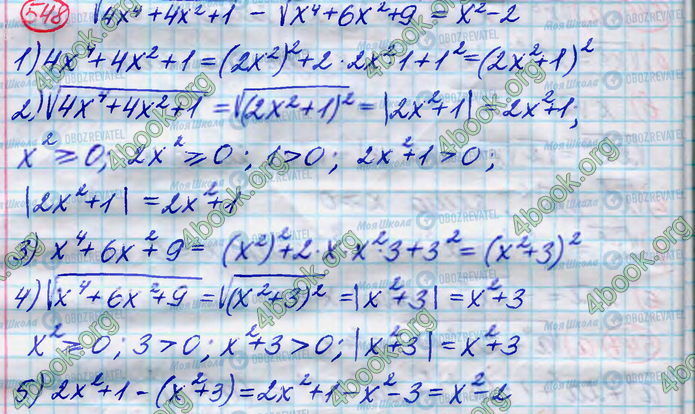 548 √4x⁴+4x²+1 - √x⁴+6x²+9 = x²-2
1) 4x⁴+4x²+1=(2x²)²+2·2x²·1+1²=(2x²+1)²
2) √4x⁴+4x²+1 = √(2x²+1)² = |2x²+1| = 2x²+1;
x² ≥ 0; 2x² ≥ 0; 1>0; 2x²+1>0;
|2x²+1| = 2x²+1
3) x⁴+6x²+9 = (x²)²+2·x x²·3+3²=(x²+3)²
4) √x⁴+6x²+9 = √(x²+3)² = |x²+3| = x²+3
x² ≥ 0; 3>0; x²+3>0; |x²+3| = x²+3
5) 2x²+1-(x²+3)=2x²+1-x²-3=x²-2
4book.org
Моя Школа
OBOZREVATEL